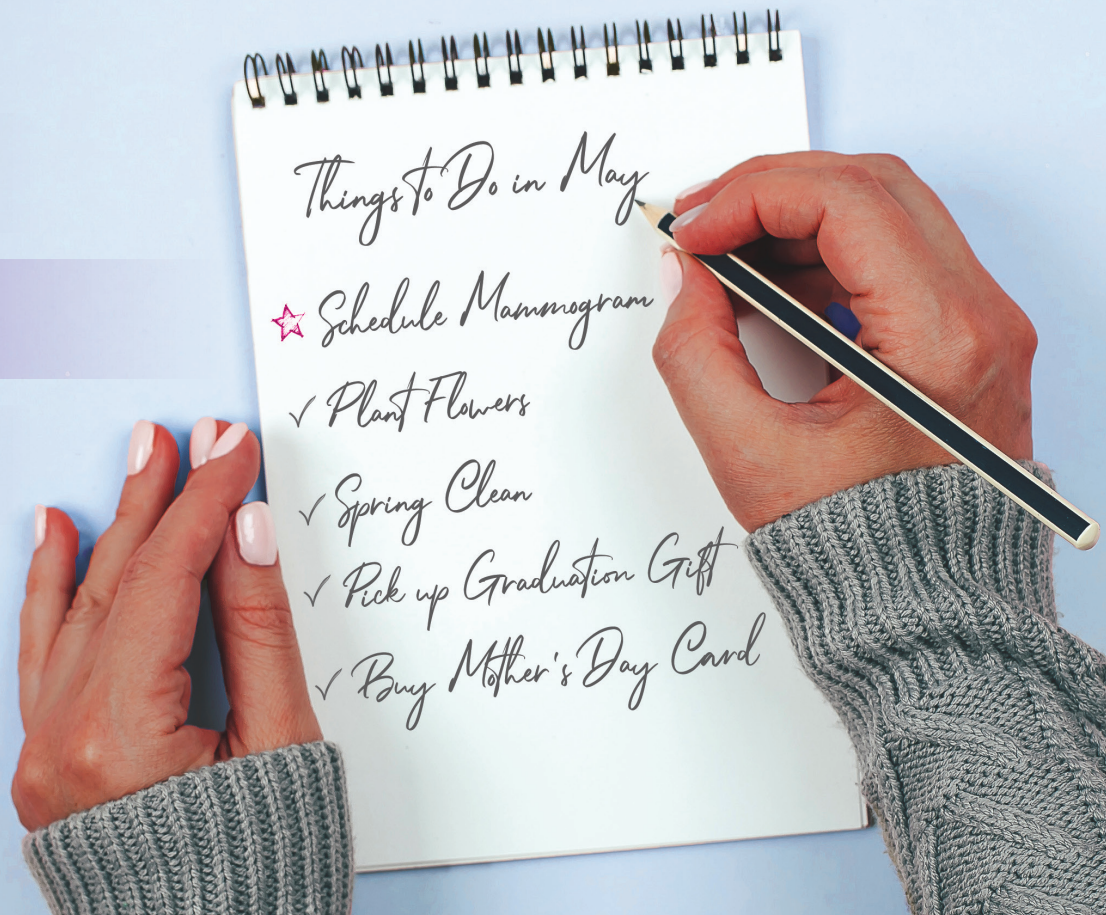 Things to Do in May
Schedule Mammogram
Plant Flowers
Spring Clean
Pick up Graduation Gift
Buy Mother's Day Card